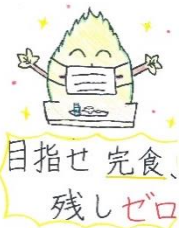 目指せ 完食、
残しゼロ